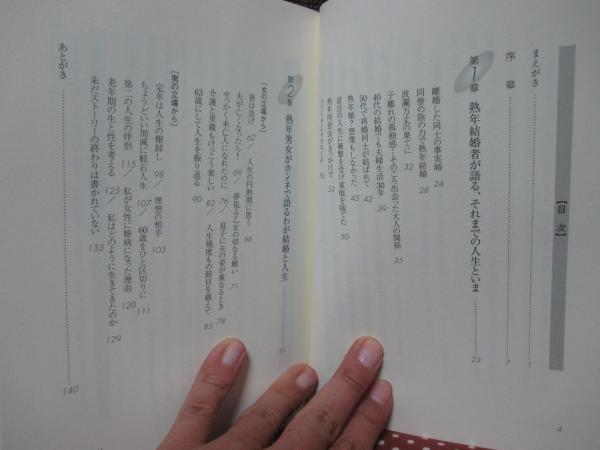 【目 次】
まえがき 1
序 章 7
第1章 熟年結婚者が語る、それまでの人生といま 23
離婚した同士の事実婚 24
同僚の陰の力で熟年結婚 28
波瀾万丈の果てに 32
子離れの孤独感…そのころ出会った大人の関係 35
40代の結婚でも夫婦生活30年 39
50代で再婚同士が結ばれて 42
熟年婚？想像もしなかった 45
盲目の人生に衝撃を受け家庭を捨てた 50
熟年同窓会がきっかけで 53
第2章 熟年男女がホンネで語るわが結婚と人生 61
【女の立場から】
春は急げ 62／人生の円熟期に思う 66
夫が亡くなった！ 69／夢見る乙女の切なる願い 71
せっかく未亡人になれたのに 76／息子に夫の姿が重なるとき 78
介護と里親もけっこう楽しい 82／人生幾度もの節目を越えて 85
63歳にして人生を振り返る 90
【男の立場から】
定年は人生の棚卸し 98／理想の相手 103
ちょうどいい加減に軽石人生 107／60歳をひと区切りに 111
第二の人生の伴侶 115／私が女性に臆病になった理由 120
老年期の生と性を考える 125／私はどのように生きてきたのか 129
未だストーリーの終わりは書かれていない 133
あとがき 140
4